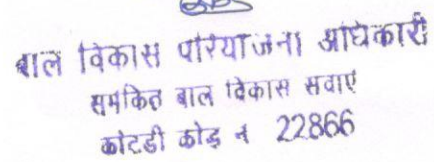 बाल विकास परियोजना अधिकारी
समेकित बाल विकास सेवाएं
कोटडी कोड नं 22866